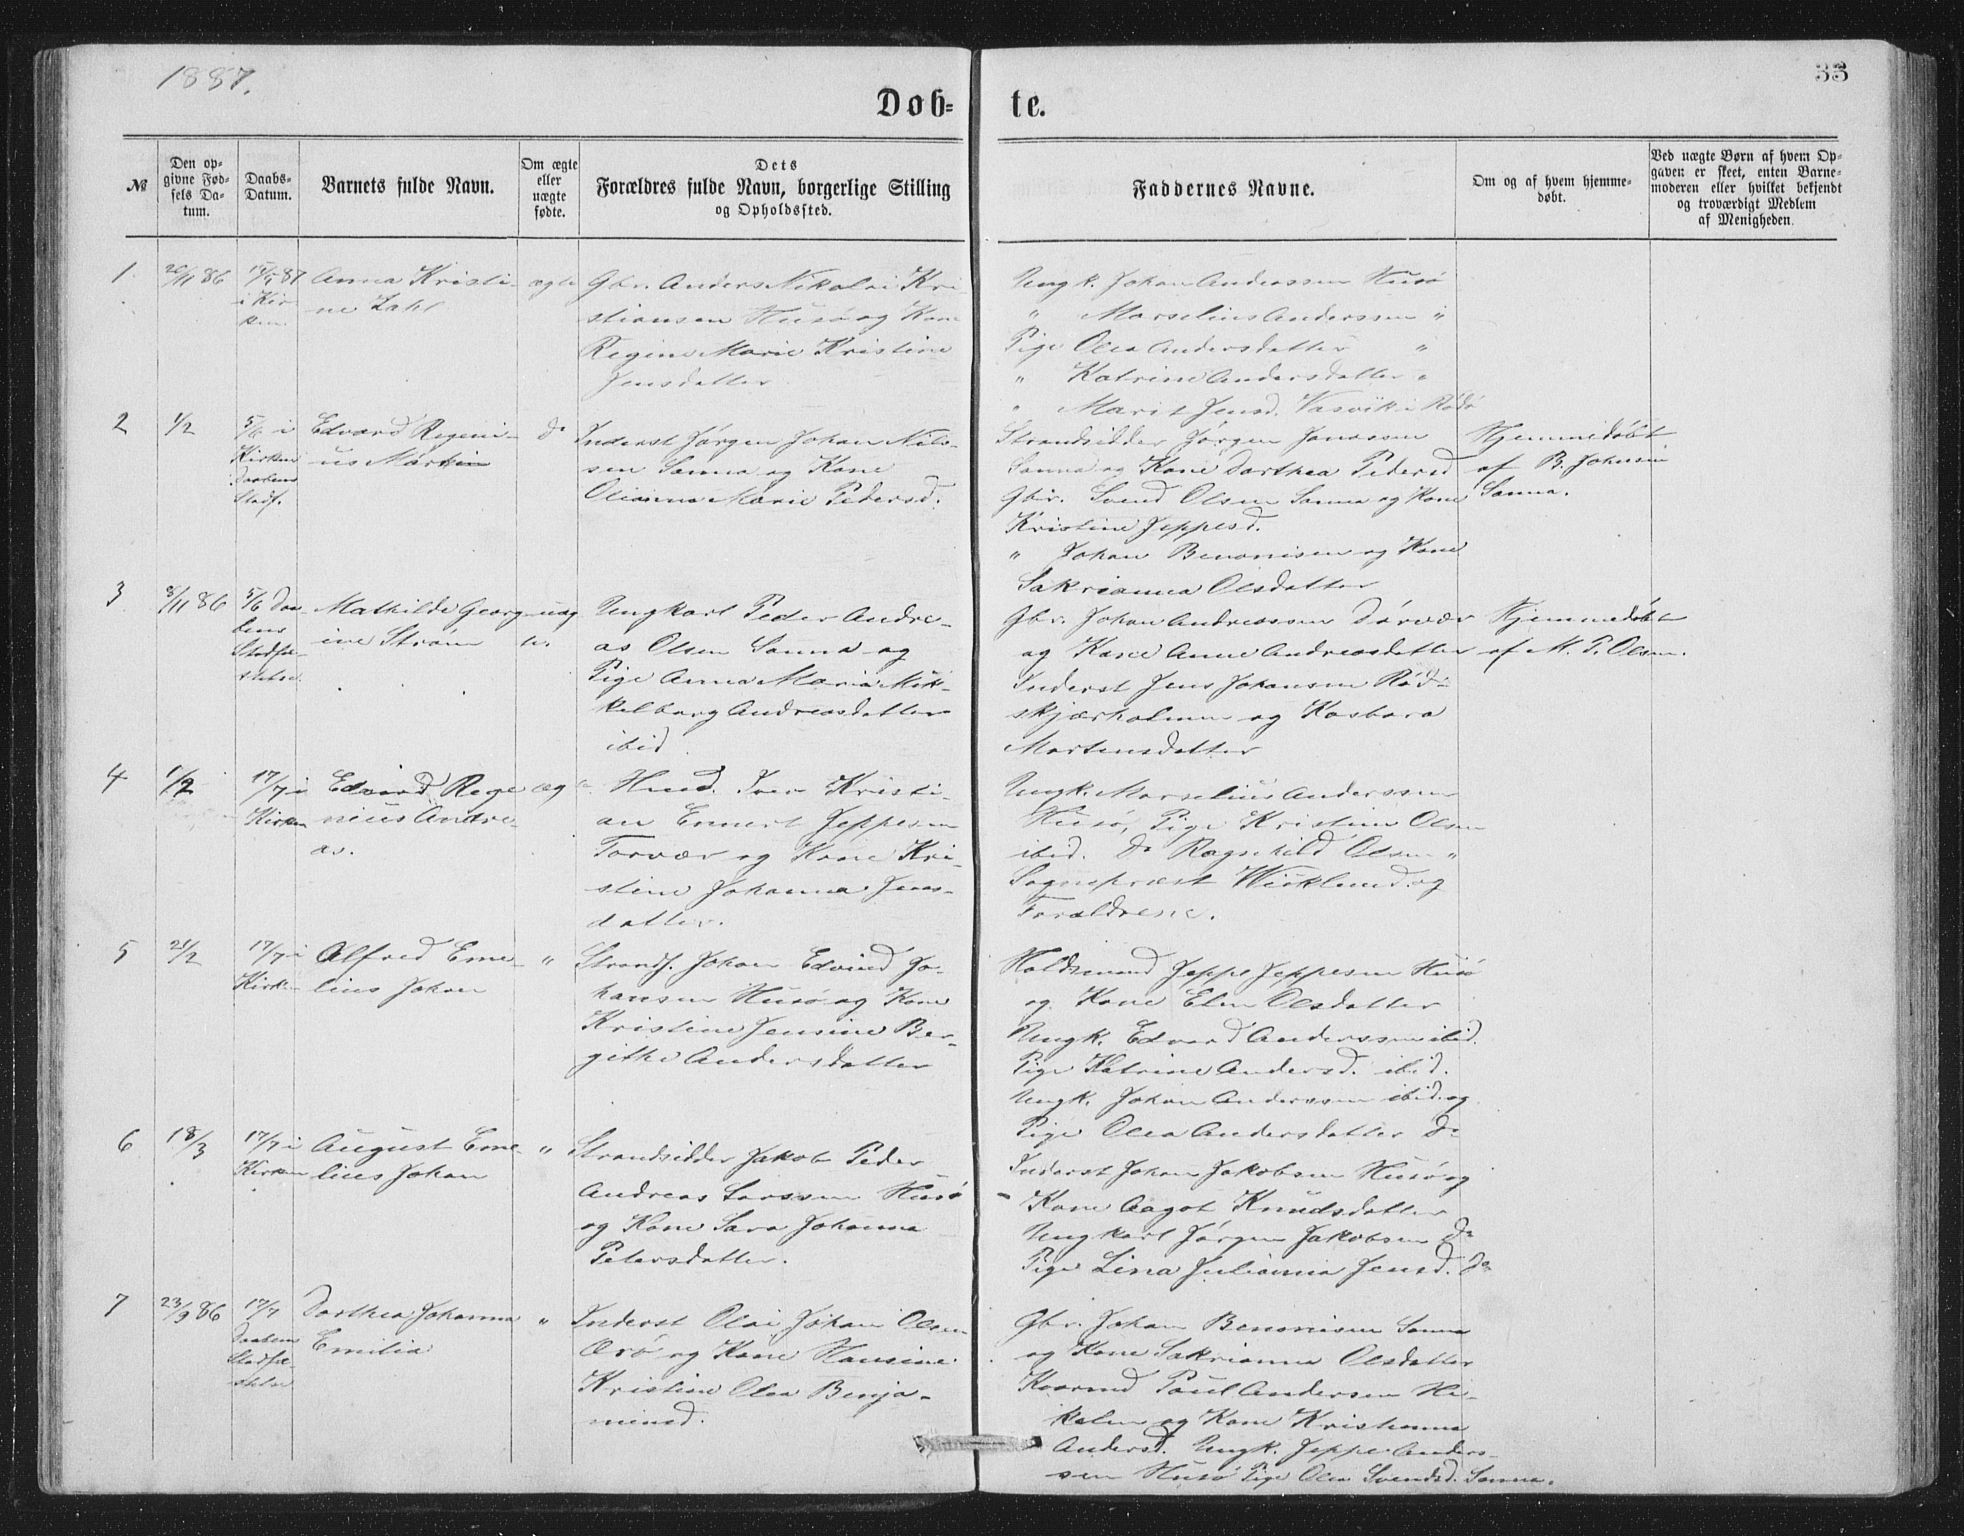 1887.
33
Døb-
te.
№
Den op-
givne Fød-
sels Da-
tum.
Daabs-
Datum.
Barnets fulde Navn.
Om ægte
eller
uægte
fødte.
Dets
Forældres fulde Navn, borgerlige Stilling
og Opholdssted.
Faddernes Navne.
Om og af hvem hjemme-
døbt.
Ved uægte Børn af hvem Op-
gaven er skeet, enten Barne-
moderen eller hvilket bekjendt
og troværdigt Medlem
af Menigheden.
1
20/11 86
i Kir-
ken
Anna Kristi-
ne Zahl
ægte
Gbr. Anders Nikolai Kri
stiansen Husø og Kone
Regine Marie Kristine
Jensdatter
Ungk. Johan Anderssen Husø
" Marselius Anderssen "
Pige Olea Andersdatter "
" Katrine Andersdatter "
" Marit Jensd. Vasvik i Rødø
2
1/2
5/6 i
Kirken
Daabens
Stadf.
Edvard Regini-
us Martin
do
Inderst Jørgen Johan Nils-
sen Sanna og Kone
Olianna Marie Pedersd.
Strandsidder Jørgen Jonassen
Sanna og Kone Dorthea Pedersd
Gbr. Svend Olsen Sanna og Kone
Kristine Jeppesd.
" Johan Benonisen og Kone
Sakrianna Olsdatter
Hjemmedøbt
af B. Johnsen
Sanna.
3
8/11 86
5/6 Daa-
bens
Stadfæ-
stelse
Mathilde Georg-
ine Strøm
uæg
te.
Ungkarl Peder Andre-
as Olsen Sanna og
Pige Anna Maria Mik-
kelborg Andreasdatter
ibid
Gbr. Johan Andreassen Dørvær
og Kone Anne Andreasdatter
Inderst Jens Johansen Rød-
skjærholmen og Kone Barbara
Mortensdatter
Hjemmedøbt
af M. P. Olsen.
4
1/2
17/7 i
Kirken
Edvard Regi
nius Andre-
as.
æg
Husmd. Iver Kristi-
an Ennert Jeppesen
Torvær og Kone Kri-
stine Johanna Jens-
datter.
Ungk. Marselius Anderssen
Husø, Pige Kristine Olsen
ibid. do Ragnhild Olsen "
Sognepræst Wisklund og
Forældrene.
5
21/2
17/7 i
Kirken
Alfred Eme-
lius Johan
"
Strands. Johan Edvind Jo-
hansen Husø og Kone
Kristine Jensine Ber-
githe Andersdatter
Holdsmand Jeppe Jeppesen Husø
og Kone Elen Olsdatter
Ungk. Edvard Anderssen ibid.
Pige Katrine Andersd. ibid.
Ungk. Johan Anderssen ibid. og
Pige Olea Andersdatter do
6
18/3
17/7 i
Kirken
August Eme-
lius Johan
"
Strandsidder Jakob Peder
Andreas Larssen Husø
og Kone Sara Johanna
Petersdatter.
Inderst Johan Jakobsen Husø og
Kone Aagot Knudsdatter
Ungkarl Jørgen Jakobsen do
Pige Lina Julianna Jensd. do
7
23/9 86
17/7
Daabens
Stadfæ-
stelse
Dorthea Johanna
Emilia
"
Inderst Olai Johan Olsen
Ærø og Kone Hansine
Kristine Olea Benja-
minsd.
Gbr. Johan Benonisen Sanna
og Kone Sakrianna Olsdatter
Kaarmd Paul Andersen Hi-
kelen og Kone Kristianna
Andersd. Ungk. Jeppe Anders-
sen Husø Pige Olea Svendsd. Sanna.